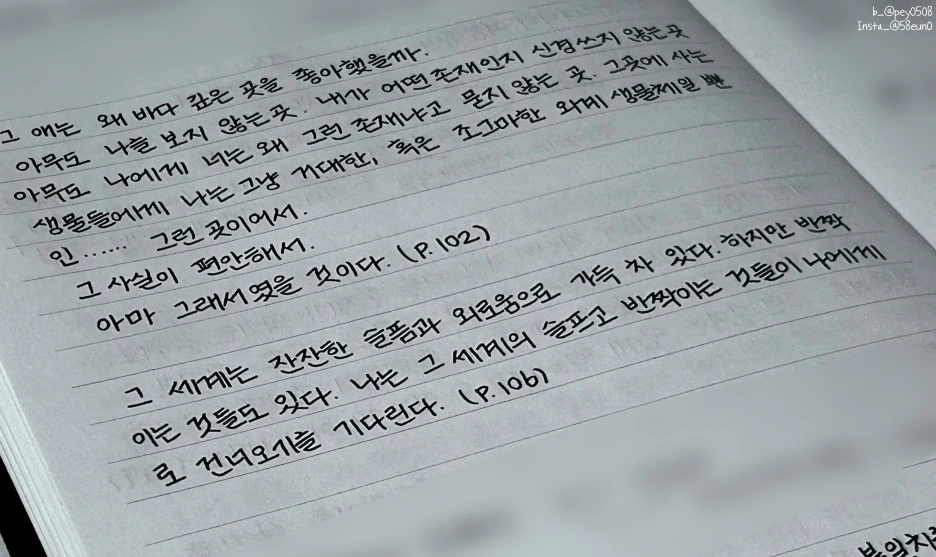 b_@pey0508
Insta_@58eun0
그 애는 왜 바다 깊은 곳을 좋아했을까.
아무도 나를 보지 않는 곳. 내가 어떤 존재인지 신경쓰지 않는 곳
아무도 나에게 너는 왜 그런 존재냐고 묻지 않는 곳. 그곳에 사는
생물들에게 나는 그냥 거대한, 혹은 조그마한 외계 생물체일 뿐
인...... 그런 곳이어서.
그 사실이 편안해서.
아마 그래서였을 것이다. (P.102)
그 세계는 잔잔한 슬픔과 외로움으로 가득 차 있다. 하지만 반짝
이는 것들도 있다. 나는 그 세계의 슬프고 반짝이는 것들이 나에게
로 건너오기를 기다린다. (P.106)